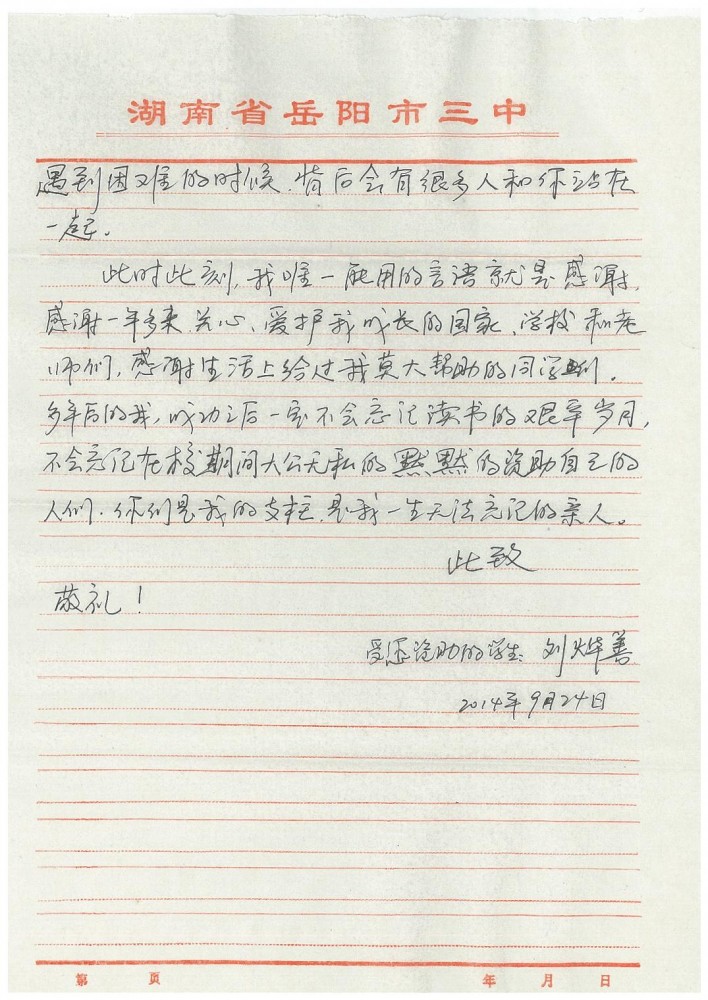 湖南省岳阳市三中
遇到困难的时候,背后会有很多人和你站在
一起。
此时此刻,我唯一能用的言语就是感谢,
感谢一年多来关心、爱护我成长的国家、学校和老
师们,感谢生活上给过我莫大帮助的同学们.
多年后的我,成功之后一定不会忘记读书的艰辛岁月,
不会忘记在校期间大公无私的默默的资助自己的
人们.你们是我的支柱,是我一生无法忘记的亲人。
此致
敬礼!
受您资助的学生:刘烨善
2014年9月24日
第 页 年 月 日